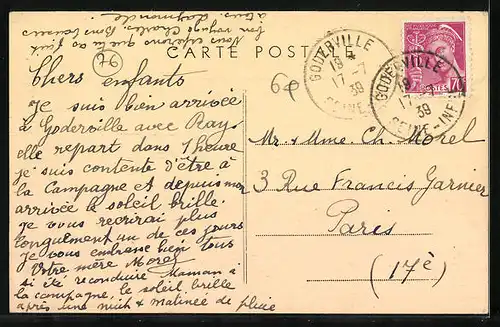 CARTE POSTALE
76
60
Chers enfants
Je suis bien arrivée
à Goderville avec Ray
elle repart dans 1 heure
je suis contente d'être à
la Campagne et depuis mon
arrivée le soleil brille.
Je vous recrirai plus
longuement un de ces jours
Je vous embrasse bien tous
Votre mère Morel
si été reconduire Maman à
la campagne, le soleil brille
après une nuit & matinée de pluie
Nous espérons que tu as fait
bon voyage Charles. Bons baisers
à tous. Raymonde
GODERVILLE
18 4
17 - 7
39
SEINE-INF
GODERVILLE
18
17
39
SEINE-INF
POSTES
70
Mr. & Mme Ch. Morel
3 Rue Francis Garnier
Paris
(17è)